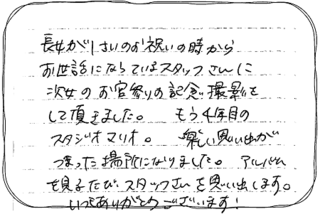 長女が1さいのお祝いの時から
お世話になっているスタッフさんに
次女のお宮参りの記念撮影を
して頂きました。 もう4年目の
スタジオマリオ。 楽しい思い出が
つまった場所になりました。 アルバム
を見るたび、スタッフさんを思い出します。
いつもありがとうございます!